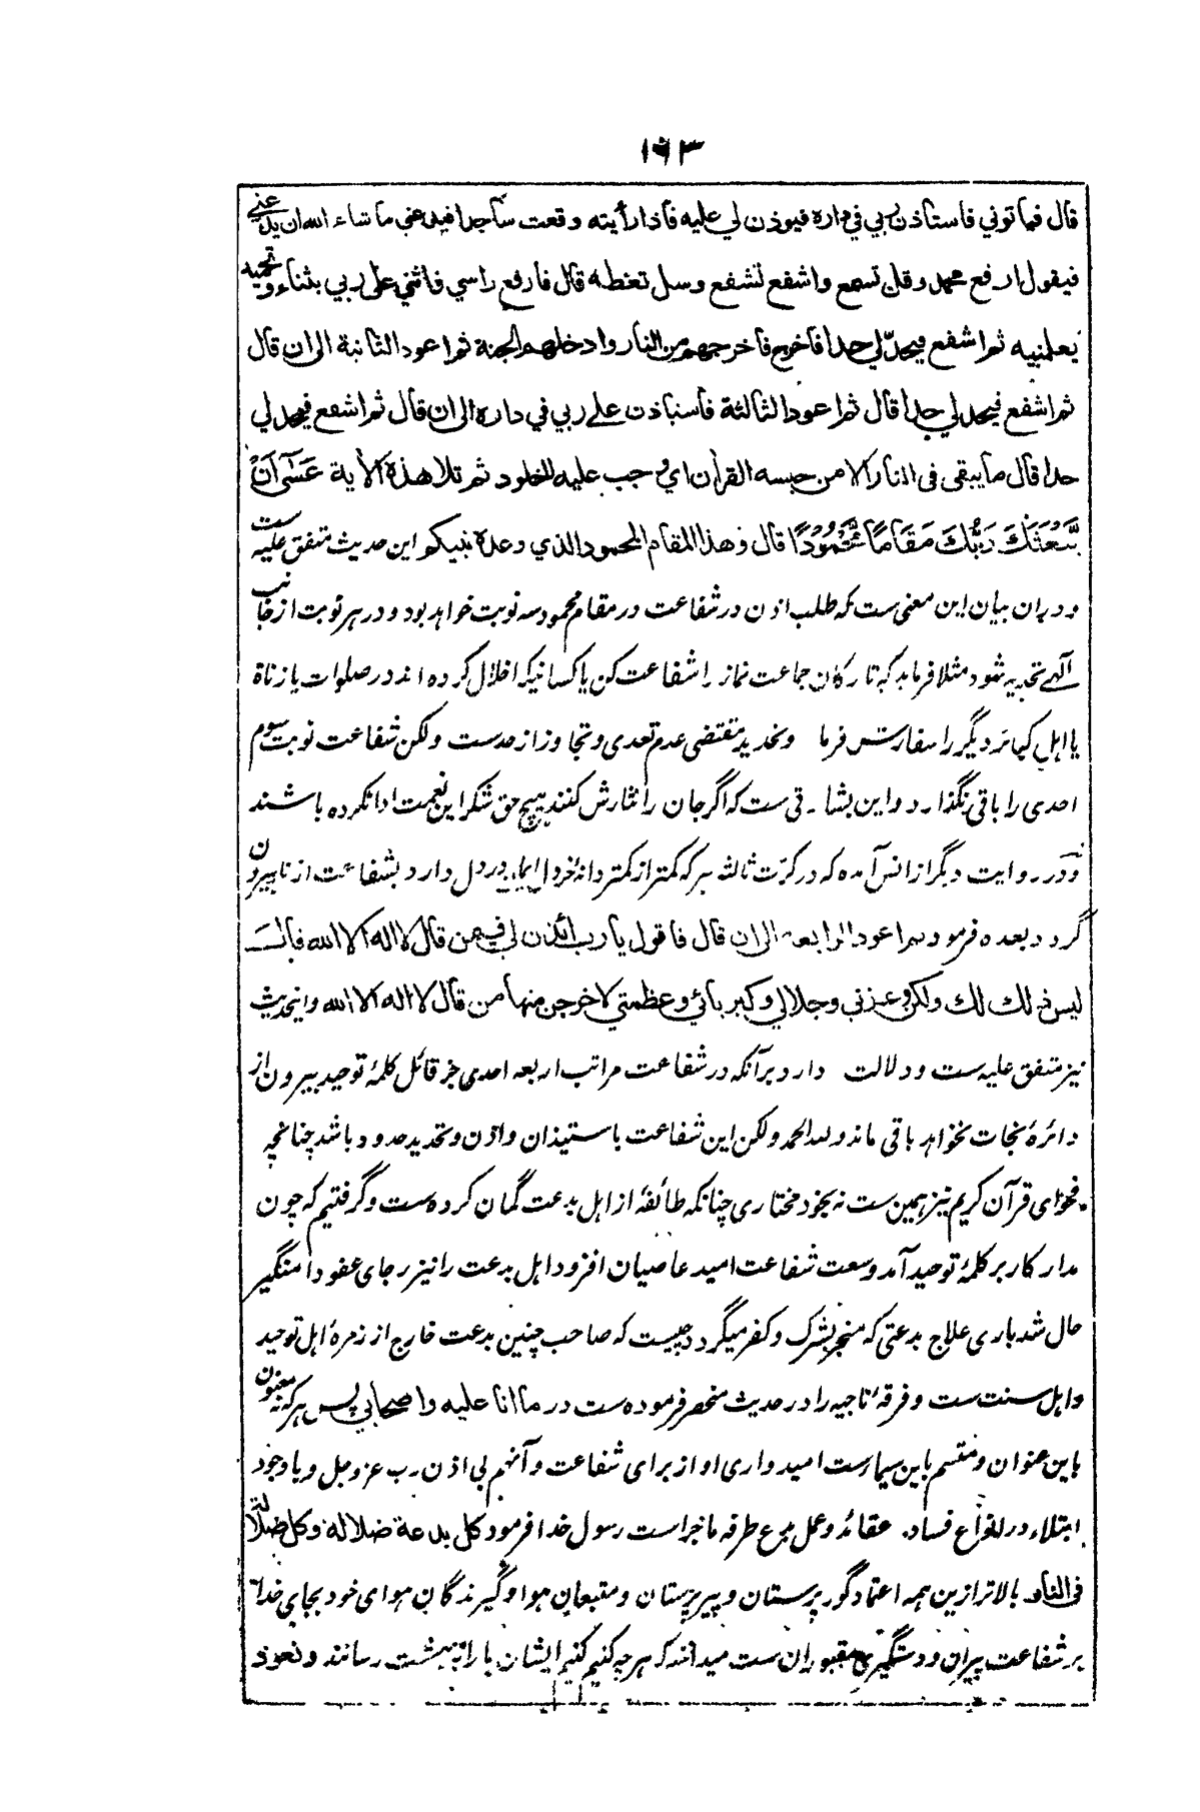 ١٦٣
قال فیاتونی فاستاذن لربی فی داره فیوذن لی علیه فاذا رأیته وقعت ساجدا فیدعنی ماشاء الله ان یدعنی
فیقول ارفع محمد وقل تسمع واشفع تشفع وسل تعطه قال فارفع راسی فاثنی علی ربی بثناء وتحمید
یعلمنیه ثم اشفع فیحدّ لی حدا فاخرج فاخرجهم من النار وادخلهم الجنة ثم اعود الثانیة الی ان قال
ثم اشفع فیحد لی حدا قال ثم اعود الثالثة فاستاذن علی ربی فی داره الی ان قال ثم اشفع فیحد لی
حدا قال ما یبقی فی النار الا من حبسه القرأن ای وجب علیه الخلود ثم تلا هذه الأیة عَسٰٓى اَنْ
يَّبْعَثَكَ رَبُّكَ مَقَامًا مَّحْمُوْدًا قال وهذا المقام المحمود الذی وعده نبیکم این حدیث متفق علیه ست
ودران بیان این معنی ست که طلب اذن در شفاعت در مقام محمود سه نوبت خواهد بود و در هر نوبت از جانب
آلهی تحدید شود مثلا فرماید که تارکان جماعت نماز را شفاعت کن یا کسانیکه اخلال کرده اند در صلوات یا زناة
یا اهل کبائر دیگر را سفارش فرما وتحدید مقتضی عدم تعدی وتجاوز از حدست ولکن شفاعت نوبت سوم
احدی را باقی نگذارد واین بشارتی ست که اگر جان را نثارش کنند هیچ حق شکر این نعمت ادا نکرده باشند
ودر روایت دیگر از انس آمده که در کرّت ثالثه هر که کمتر از کمتر دانهٔ خردل ایمان در دل دارد بشفاعت از نار بیرون
گردد بعده فرمود ثم اعود الرابعة الی ان قال فاقول یارب ائذن لی فیمن قال لا اله الا الله قال
لیس ذلك لك ولکن وعزتی وجلالی وکبریائی وعظمتی لاخرجن منها من قال لا اله الا الله واینحدیث
نیز متفق علیه ست ودلالت دارد برآنکه در شفاعت مراتب اربعه احدی جز قائل کلمهٔ توحید بیرون از
دائرهٔ نجات نخواهد باقی ماند ولله الحمد ولکن این شفاعت باستیذان واذن وتحدید حدود باشد چنانچه
فحوای قرآن کریم نیز همین ست نه بخود مختاری چنانکه طائفهٔ از اهل بدعت گمان کرده ست وگرفتیم که چون
مدار کار بر کلمهٔ توحید آمد وسعت شفاعت امید عاصیان افزود اهل بدعت را نیز رجای عفو دامنگیر
حال شد باری علاج بدعتی که منجر بشرک وکفر میگردد چیست که صاحب چنین بدعت خارج از زمرهٔ اهل توحید
واهل سنت ست وفرقهٔ ناجیه را در حدیث منحصر فرموده ست در ما انا علیه واصحابی پس هرکه نه معنون
باین عنوان ومتسم باین سیماست امیدواری او از برای شفاعت وآنهم بی اذن رب عزوجل وباوجود
ابتلاء در انواع فساد عقائد وعمل بدع طرفه ماجراست رسول خدا فرمود کل بدعة ضلالة وکل ضلالة
فی النار بالاتر ازین همه اعتماد گور پرستان وپیر پرستان ومتبعان هوا وگیرندگان هوای خود بجای خدا
بر شفاعت پیران ودستگیری مقبوران ست میدانند که هرچه کنیم کنیم ایشان ما را به بهشت رسانند ونعوذ